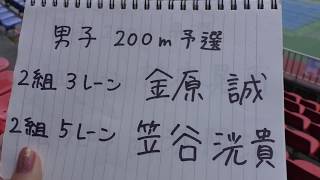 男子 200m予選
2組 3レーン 金原 誠
2組 5レーン 笠谷 洸貴